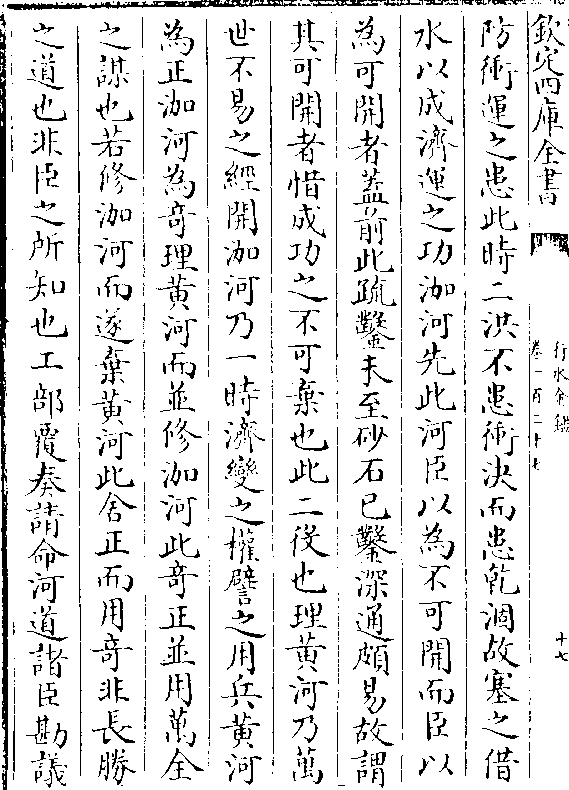 欽定四庫全書
行水金鑑
卷一百二十七
十七
防衝運之患此時二洪不患衝決而患乾涸故塞之借
水以成濟運之功泇河先此河臣以為不可開而臣以
為可開者蓋前此疏鑿未至砂石已鑿深通頗易故謂
其可開者惜成功之不可棄也此二後也理黄河乃萬
世不易之經開泇河乃一時濟變之權譬之用兵黄河
為正泇河為竒理黄河而並修泇河此竒正並用萬全
之謀也若修泇河而遂棄黄河此舍正而用竒非長勝
之道也非臣之所知也工部覆奏請命河道諸臣勘議